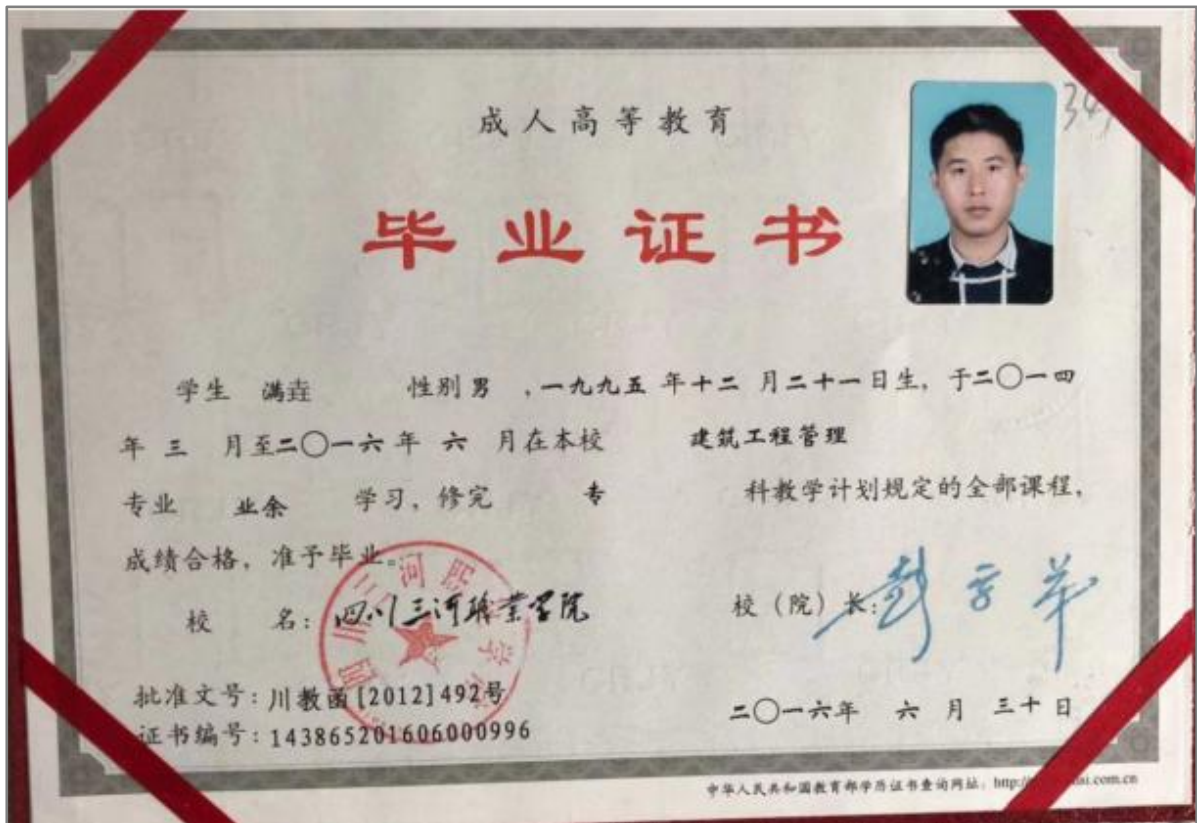 成人高等教育
毕业证书
学生 满垚 性别 男 ,一九九五 年十二 月二十一日生, 于二〇一四
年 三 月至二〇一六年 六 月在本校 建筑工程管理
专业 业余 学习, 修完 专 科教学计划规定的全部课程,
成绩合格, 准予毕业。
校 名: 四川三河职业学院
校（院）长:
批准文号: 川教函[2012]492号
证书编号: 143865201606000996
二〇一六年 六 月 三十日
中华人民共和国教育部学历证书查询网址: http:// .com.cn